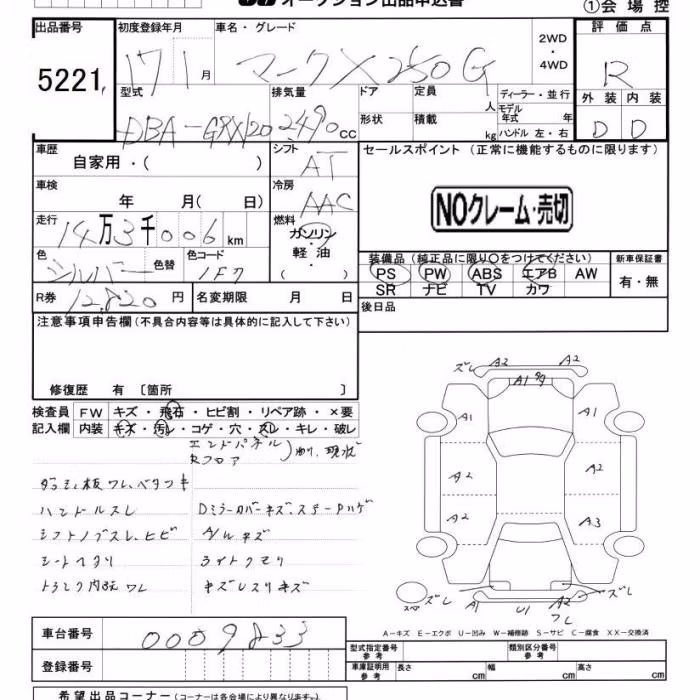 オークション出品申込書
①会場控
出品番号 初度登録年月 車名・グレード 評価点
5221 17 1月 マークX250G 2WD・4WD R
型式 排気量 ドア 定員 人 ディーラー・並行 外装 内装
DBA-GRX120 2490cc 形状 積載 kg モデル年式 年 ハンドル 左・右 D D
車歴 シフト セールスポイント (正常に機能するものに限ります)
自家用・( ) AT
車検 冷房
年 月( 日) AAC
NOクレーム・売切
走行 燃料
14万3千006km ガソリン・軽油・( )
色 色替 色コード 装備品(純正品に限り○をつけてください) 新車保証書
シルバー 1F7 PS PW ABS エアB AW 有・無
SR ナビ TV カワ
R券 12,820円 名変期限 月 日 後日品
注意事項申告欄(不具合内容等は具体的に記入して下さい)
修復歴 有〔箇所 〕
検査員 FW キズ・飛石・ヒビ割・リペア跡・×要
記入欄 内装 キズ・汚レ・コゲ・穴・スレ・キレ・破レ
エンドパネル
Rフロア
現状
ハンドルスレ DミラーカバーキズステーPハゲ
シフトノブスレ、ヒビ A/Wキズ
シートヘタリ ライトクモリ
トランク内張ワレ キズレスリキズ
ズレ A2 A2
A1
A1 A1
A2 A2
A2 A3
スペア ズレ A1 U1 A2 ズレ
ワレ
A-キズ E-エクボ U-凹み W-補修跡 S-サビ C-腐食 XX-交換済
車台番号 0009833
型式指定番号 参考 類別区分番号 参考
登録番号 車庫証明用 参考 長さ cm 幅 cm 高さ cm
希望出品コーナー(コーナーは各会場により異なります。)